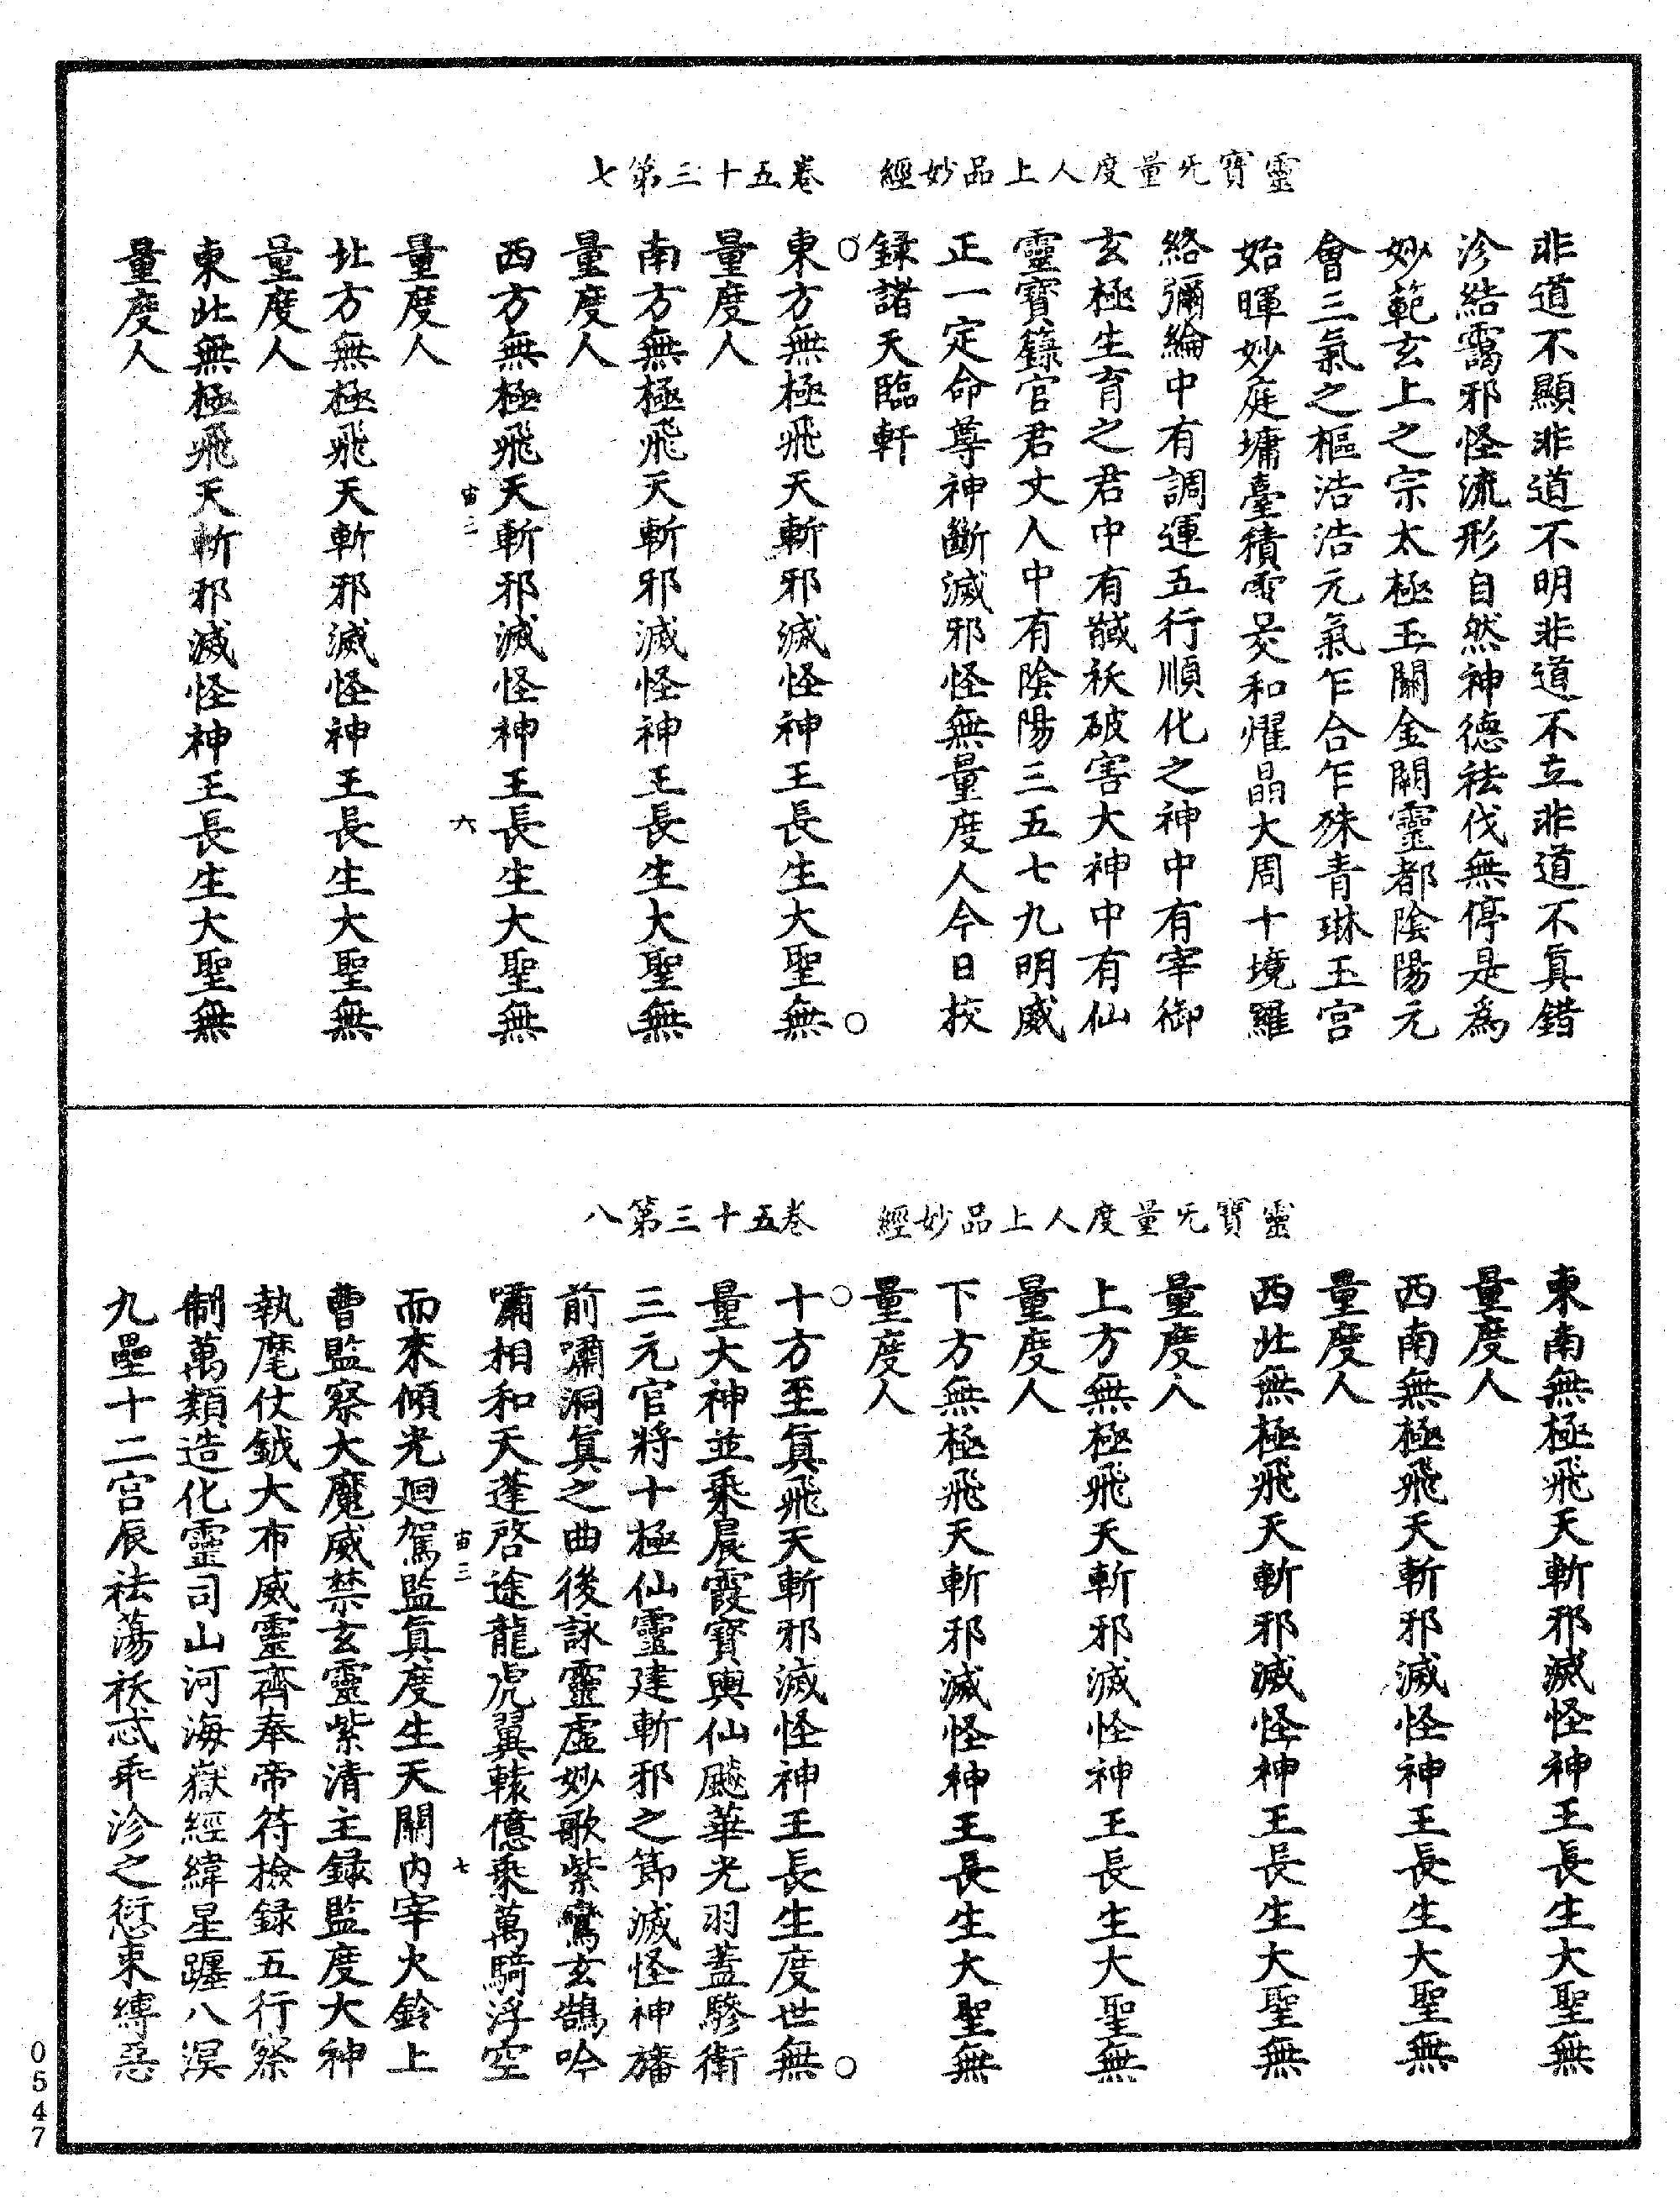 靈寶无量度人上品妙經　卷五十三第七
非道不顯非道不明非道不立非道不真錯
沴結靄邪怪流形自然神德袪伐無停是為
妙範玄上之宗太極玉關金闕靈都陰陽元
會三氣之樞浩浩元氣乍合乍殊青琳玉宮
始暉妙庭墉臺積雪炅和燿晶大周十境羅
絡彌綸中有調運五行順化之神中有宰御
玄極生育之君中有馘祅破害大神中有仙
靈寶籙官君丈人中有陰陽三五七九明威
正一定命尊神斷滅邪怪無量度人今日校
録諸天臨軒
○
東方無極飛天斬邪滅怪神王長生大聖無
量度人
南方無極飛天斬邪滅怪神王長生大聖無
量度人
西方無極飛天斬邪滅怪神王長生大聖無
宙三　六
量度人
北方無極飛天斬邪滅怪神王長生大聖無
量度人
東北無極飛天斬邪滅怪神王長生大聖無
量度人
靈寶无量度人上品妙經　卷五十三第八
東南無極飛天斬邪滅怪神王長生大聖無
量度人
西南無極飛天斬邪滅怪神王長生大聖無
量度人
西北無極飛天斬邪滅怪神王長生大聖無
量度人
上方無極飛天斬邪滅怪神王長生大聖無
量度人
下方無極飛天斬邪滅怪神王長生大聖無
量度人
○
十方至真飛天斬邪滅怪神王長生度世無
量大神並乘晨霞寶輿仙飈華光羽蓋驂衛
三元官將十極仙靈建斬邪之節滅怪神旛
前嘯洞真之曲後詠靈虛妙歌紫鸞玄鵠吟
嘯相和天蓬啓途龍虎翼轅億乘萬騎浮空
宙三　七
而來傾光廻駕監真度生天關內宰火鈴上
曹監察大魔威禁玄靈紫清主録監度大神
執麾仗鉞大布威靈齊奉帝符檢録五行察
制萬類造化靈司山河海嶽經緯星躔八溟
九壘十二宮辰袪蕩祅忒乖沴之愆束縛惡
0547